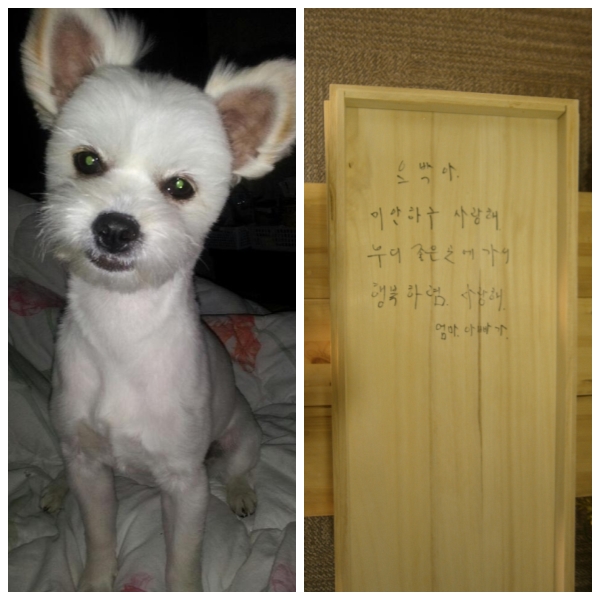 은박아.
미안하구 사랑해
부디 좋은곳에 가서
행복하렴. 사랑해.
엄마. 아빠가.